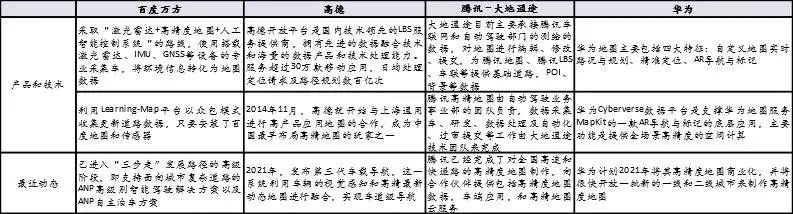 百度万方
高德
腾讯-大地通途
华为
产品和技术
采取“激光雷达+高精度地图+人工
智能控制系统”的路线，使用搭载
激光雷达、IMU、GNSS等设备的专
业采集车，将环境信息转化为地图
数据
高德开放平台是国内技术领先的LBS服
务提供商，拥有先进的数据融合技术
和海量的数据产品和技术处理能力。
服务超过50万款移动应用，日均处理
定位请求及路径规划数百亿次
大地通途目前主要承接腾讯车
联网和自动驾驶部门的测绘的
数据，对地图进行编辑、修改
、提交，为腾讯地图、腾讯LBS
、车联等提供基础道路，POI、
背景等数据
华为地图主要包括四大特点：自定义地图实时
路况与规划、精准定位、AR导航与标记
利用Learning-Map平台以众包模式
收集更新道路数据，只要安装了百
度地图和传感器
2014年11月，高德就开始与上海通用
进行高产品应用地图的合作，成为中
国最早布局高精地图的玩家之一
腾讯高精地图由自动驾驶业务
事业部的团队负责，数据采集
车、研发、数据处理及自动化
、过审提交等工作由大地通途
技术团队来完成
华为Cyberverse数据平台是支撑华为地图服务
MapKit的一款AR导航与标记的底层应用，主要
功能是提供全场景高精度的空间计算
最近动态
已进入“三步走”发展路径的高级
阶段，即支持面向城市复杂道路的
ANP高级别智能驾驶解决方案以及
ANP自主泊车方案
2021年，发布第三代车载导航，这一
系统利用车辆的视觉感知和高精最新
动态地图进行融合，实现车道级导航
腾讯已经完成了对全国高速和
快速道路的高精度地图制作，向
合作伙伴提供包括高精度地图
数据，车端应用，和高精地图
云服务
华为计划2021年将其高精度地图商业化，并将
很快开放一批新的一线和二线城市来制作高精
度地图